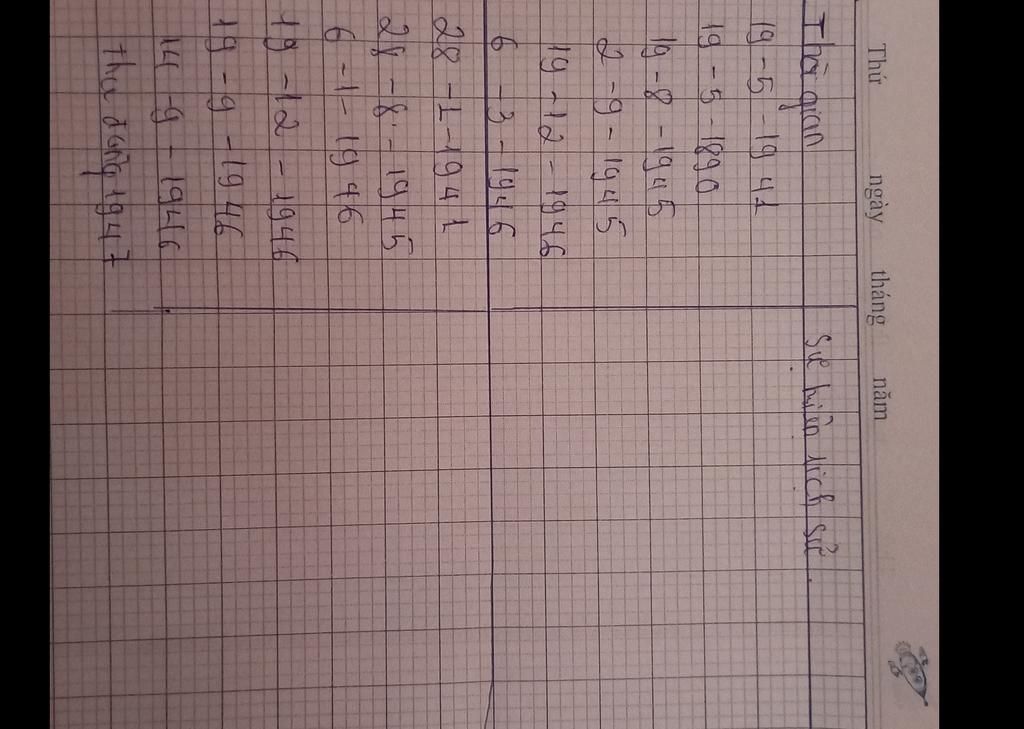 Thứ ngày tháng năm
Thời gian Sự kiện lịch sử.
19 - 5 - 1941
19 - 5 - 1890
19 - 8 - 1945
2 - 9 - 1945
19 - 12 - 1946
6 - 3 - 1946
28 - 1 - 1941
28 - 8 - 1945
6 - 1 - 1946
19 - 12 - 1946
19 - 9 - 1946
14 - 9 - 1946
thu đông 1947